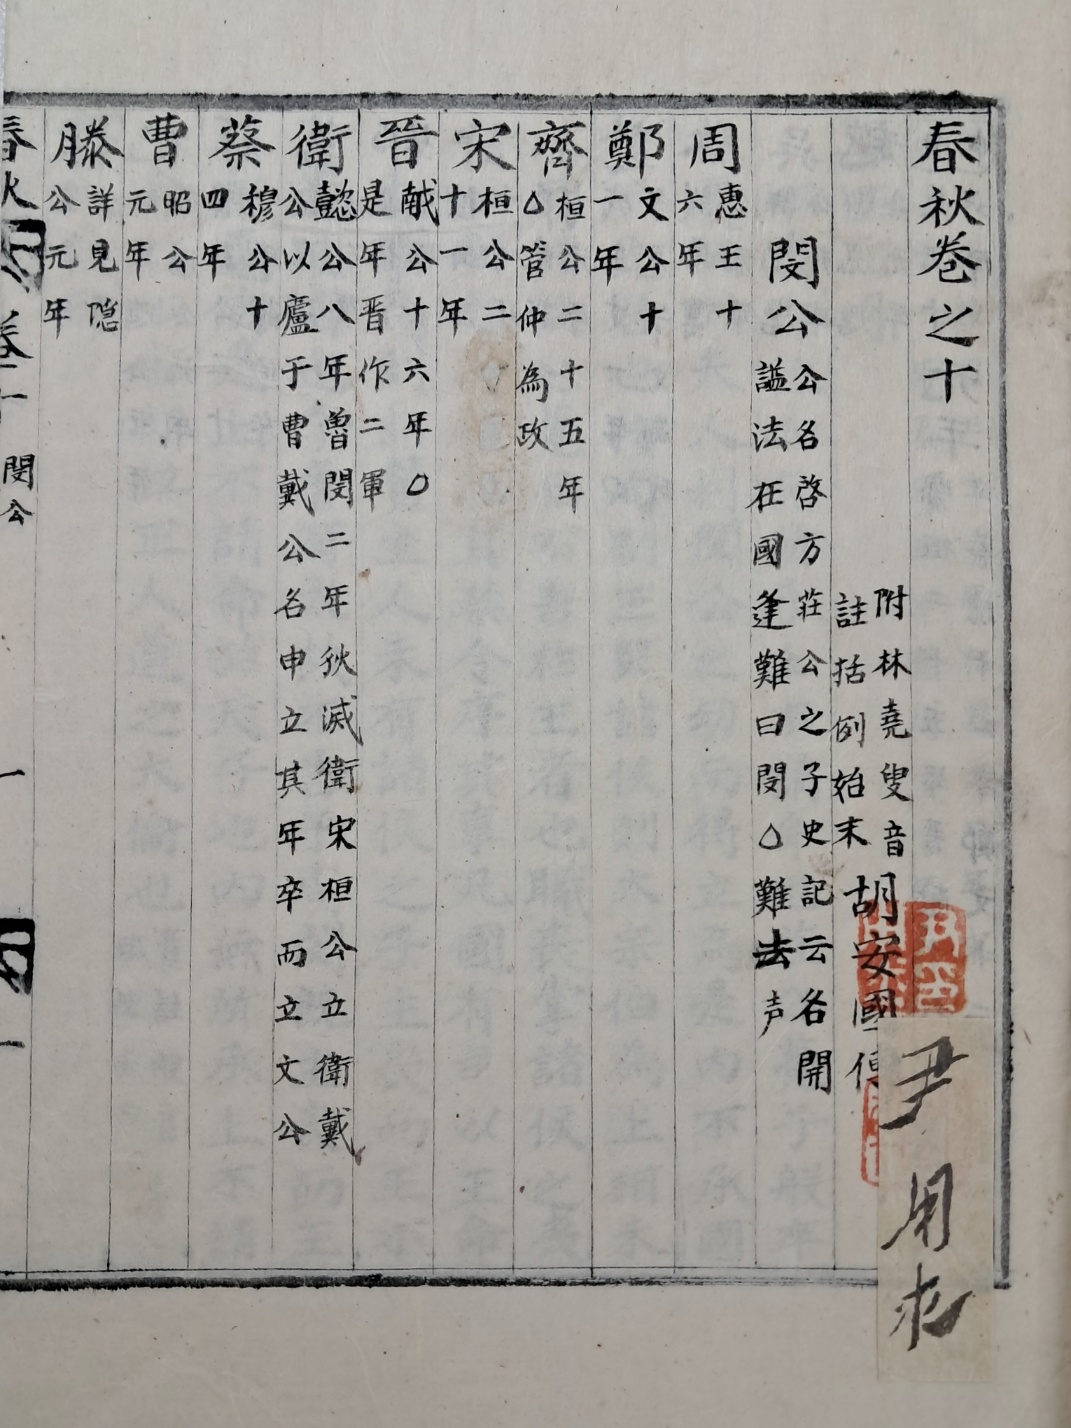 春秋卷之十
附林堯叟音
註括例始末
胡安國傳
閔公
公名啓方莊公之子史記云名開
謚法在國逢難曰閔△難去声
周
惠王十
六年
鄭
文公十
一年
齊
桓公二十五年
△管仲為政
宋
桓公二
十一年
晉
献公十六年○
是年晋作二軍
衛
懿公八年魯閔二年狄滅衛宋桓公立衛戴
公以廬于曹戴公名申立其年卒而立文公
蔡
穆公十
四年
曹
昭公
元年
滕
詳見隠
公元年
春秋
卷十
閔公
一
尹
用求